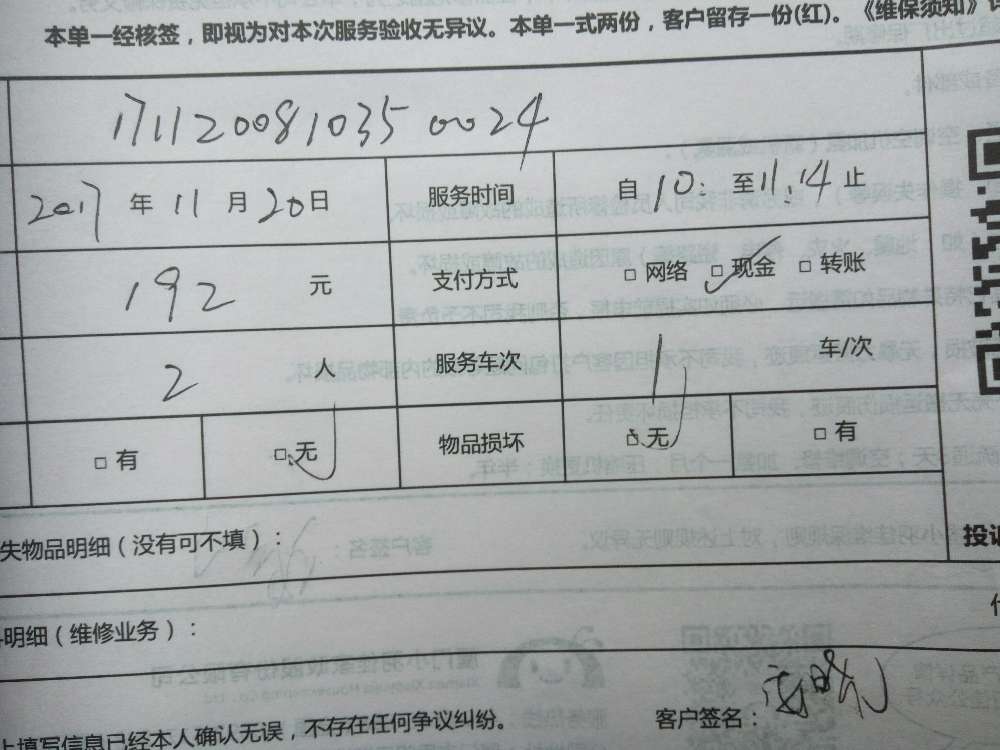 本单一经核签，即视为对本次服务验收无异议。本单一式两份，客户留存一份(红)。《维保须知》
1711200810350024
2017 年 11 月 20 日 服务时间 自 10: 至 11.14 止
192 元 支付方式 □ 网络 ☑ 现金 □ 转账
2 人 服务车次 1 车/次
□ 有 ☑ 无 物品损坏 ☑ 无 □ 有
失物品明细（没有可不填）：
投诉
明细（维修业务）：
上填写信息已经本人确认无误，不存在任何争议纠纷。 客户签名：